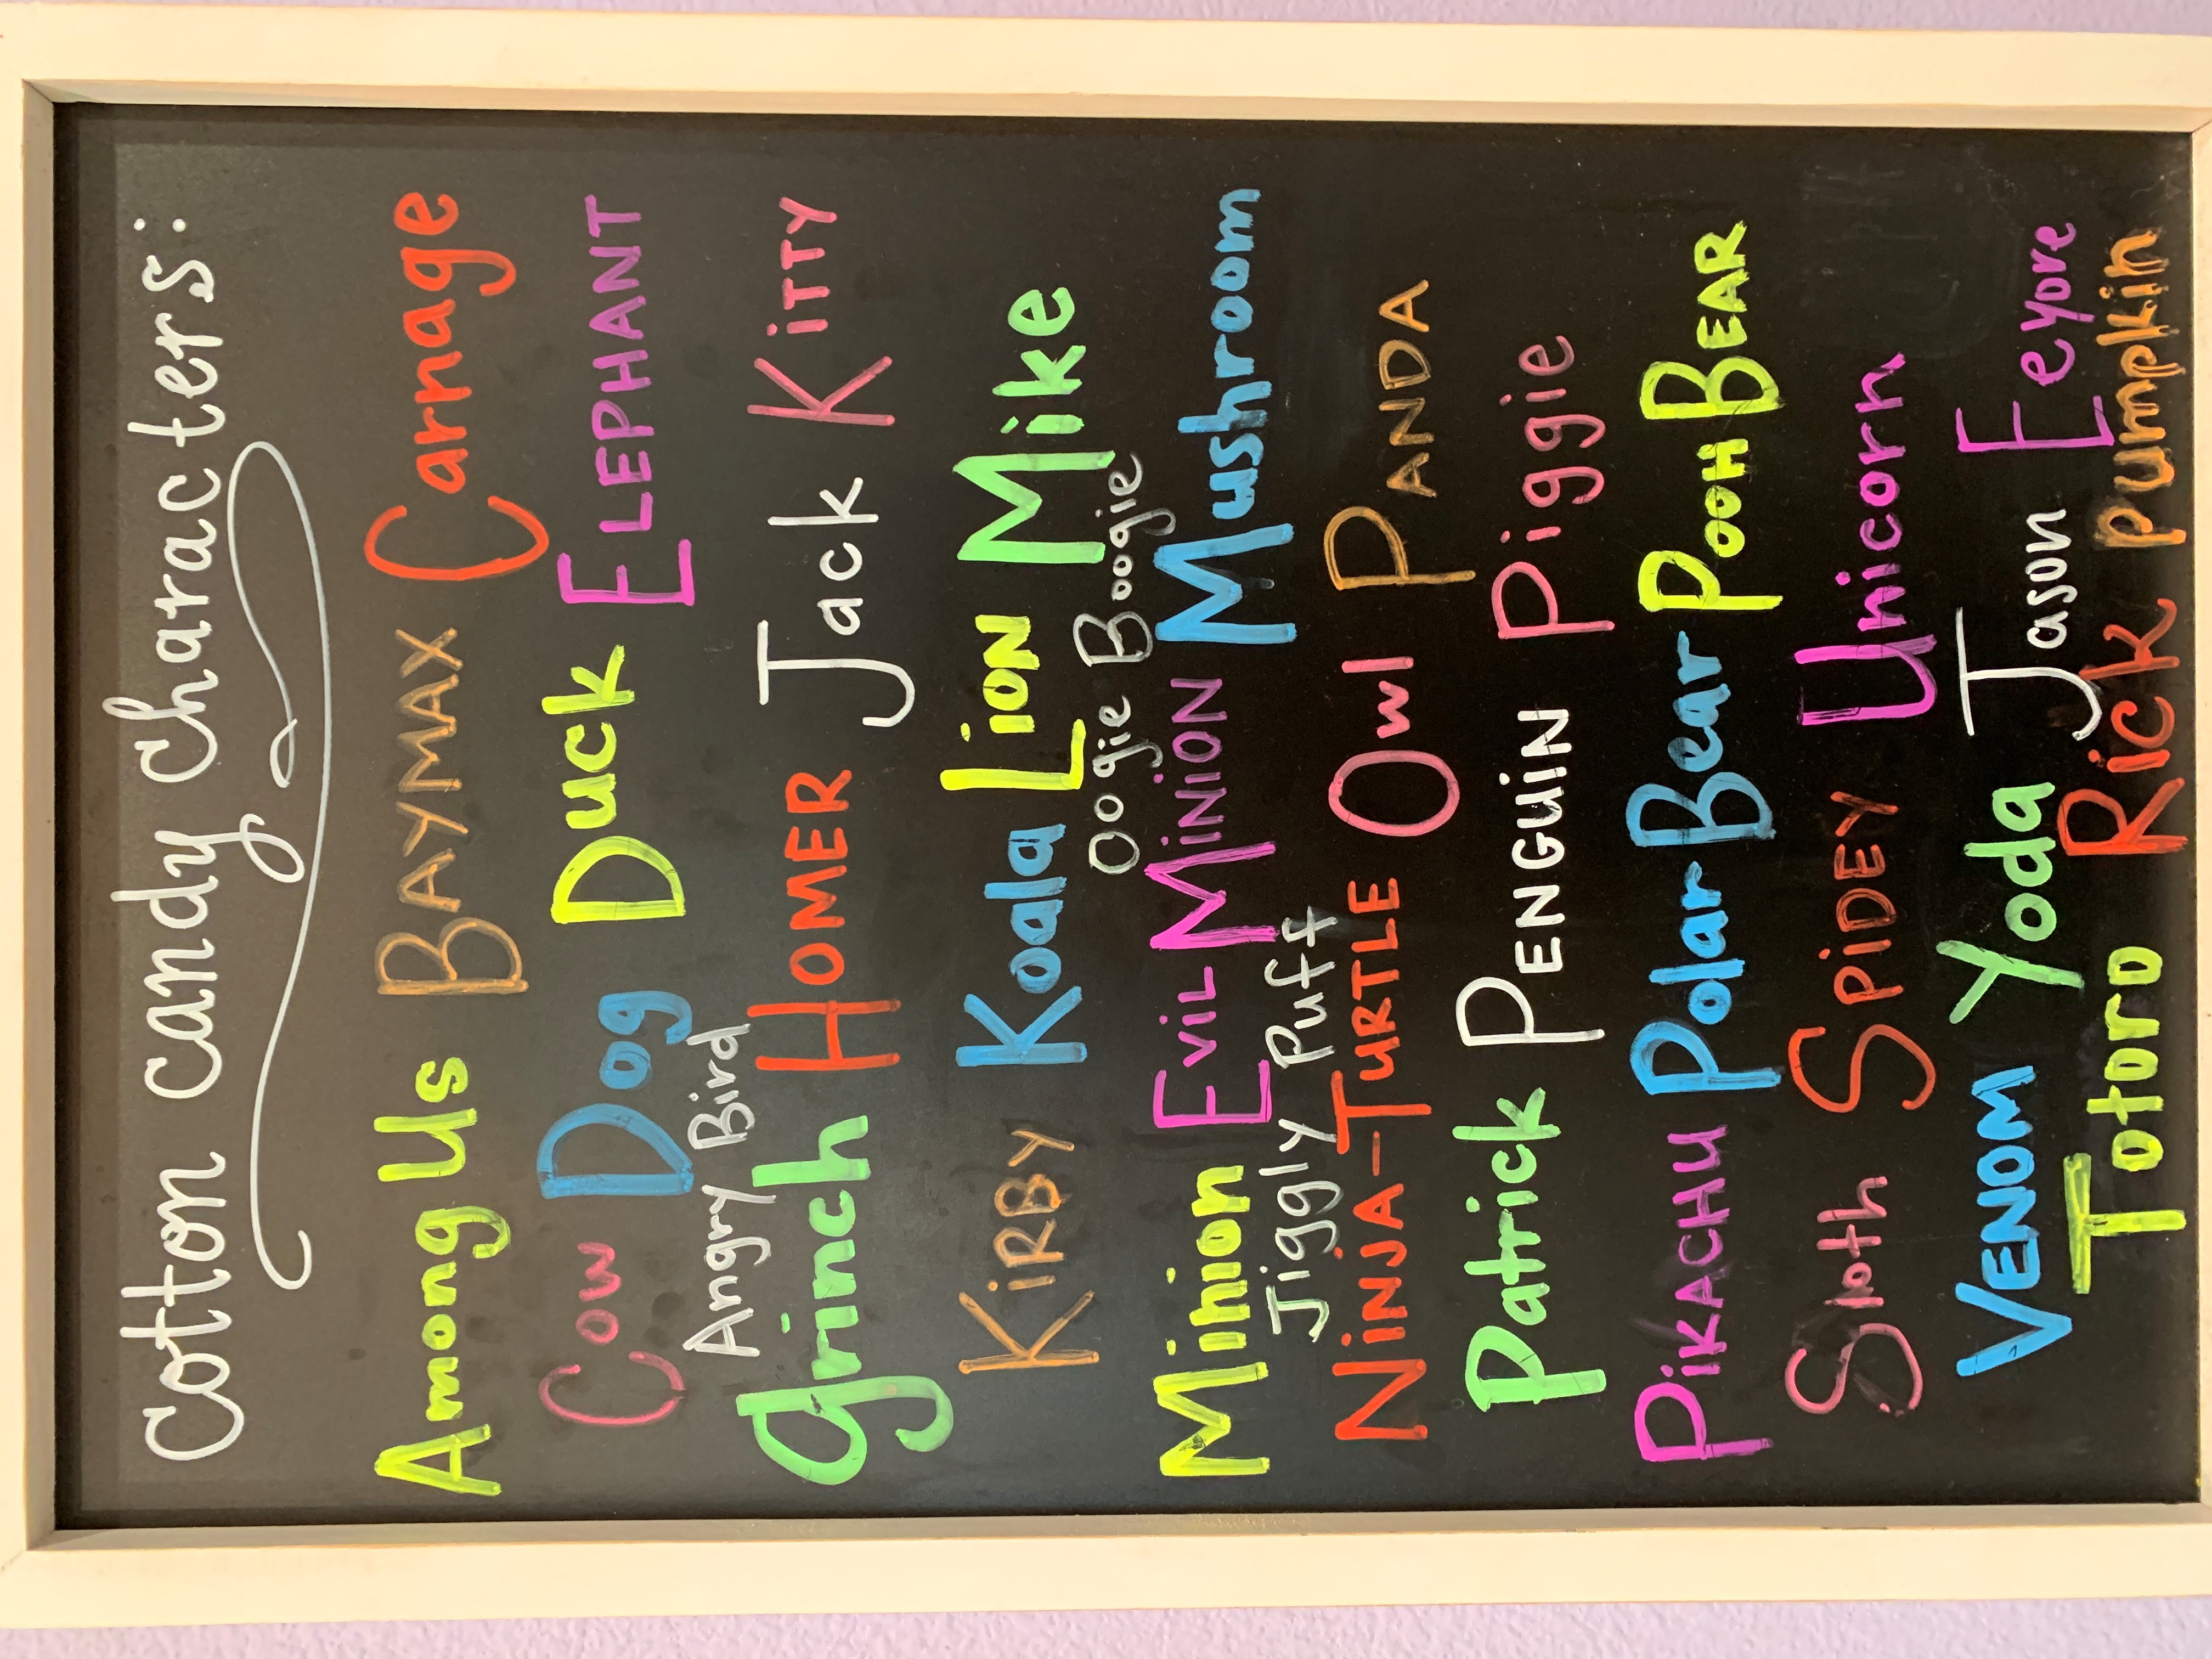 Cotton Candy Characters:
Among Us BAYMAX Carnage
Cow Dog Duck ELEPHANT
Angry Bird
Grinch HOMER Jack KiTTY
KiRBY Koala LiON Mike
Oogie Boogie
Minion EViL MiNiON Mushroom
Jiggly Puff
NiNJA-TURTLE Owl PANDA
Patrick PENGUiN Piggie
PiKACHU Polar Bear POOH BEAR
Sloth SPiDEY Unicorn
VENOM Yoda Jason Eeyore
Totoro Rick Pumpkin